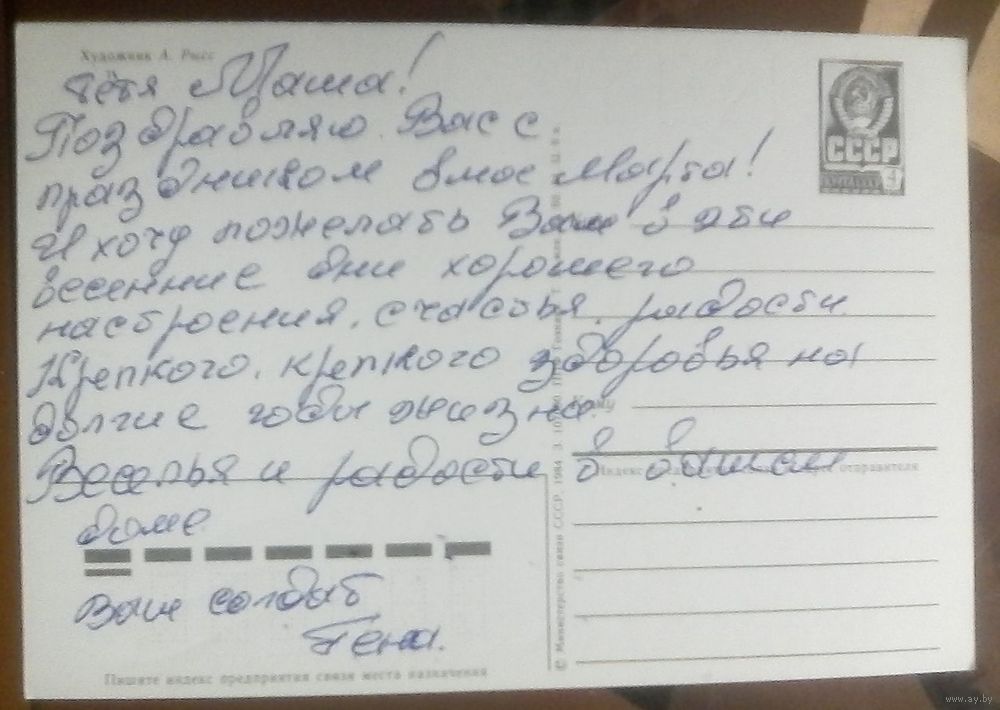 Художник А. Рысс
тётя Маша!
Поздравляю Вас с
праздником 8мое Марта!
И хочу пожелать Вам в эти
весенние дни хорошего
настроения, счастья, радости
Крепкого, крепкого здоровья на
долгие годы жизни.
Веселья и радости в вашем
доме
Ваш солдат
Гена.
Пишите индекс предприятия связи места назначения
СССР
4
Кому
© Министерство связи СССР, 1984
отправителя
www.ay.by